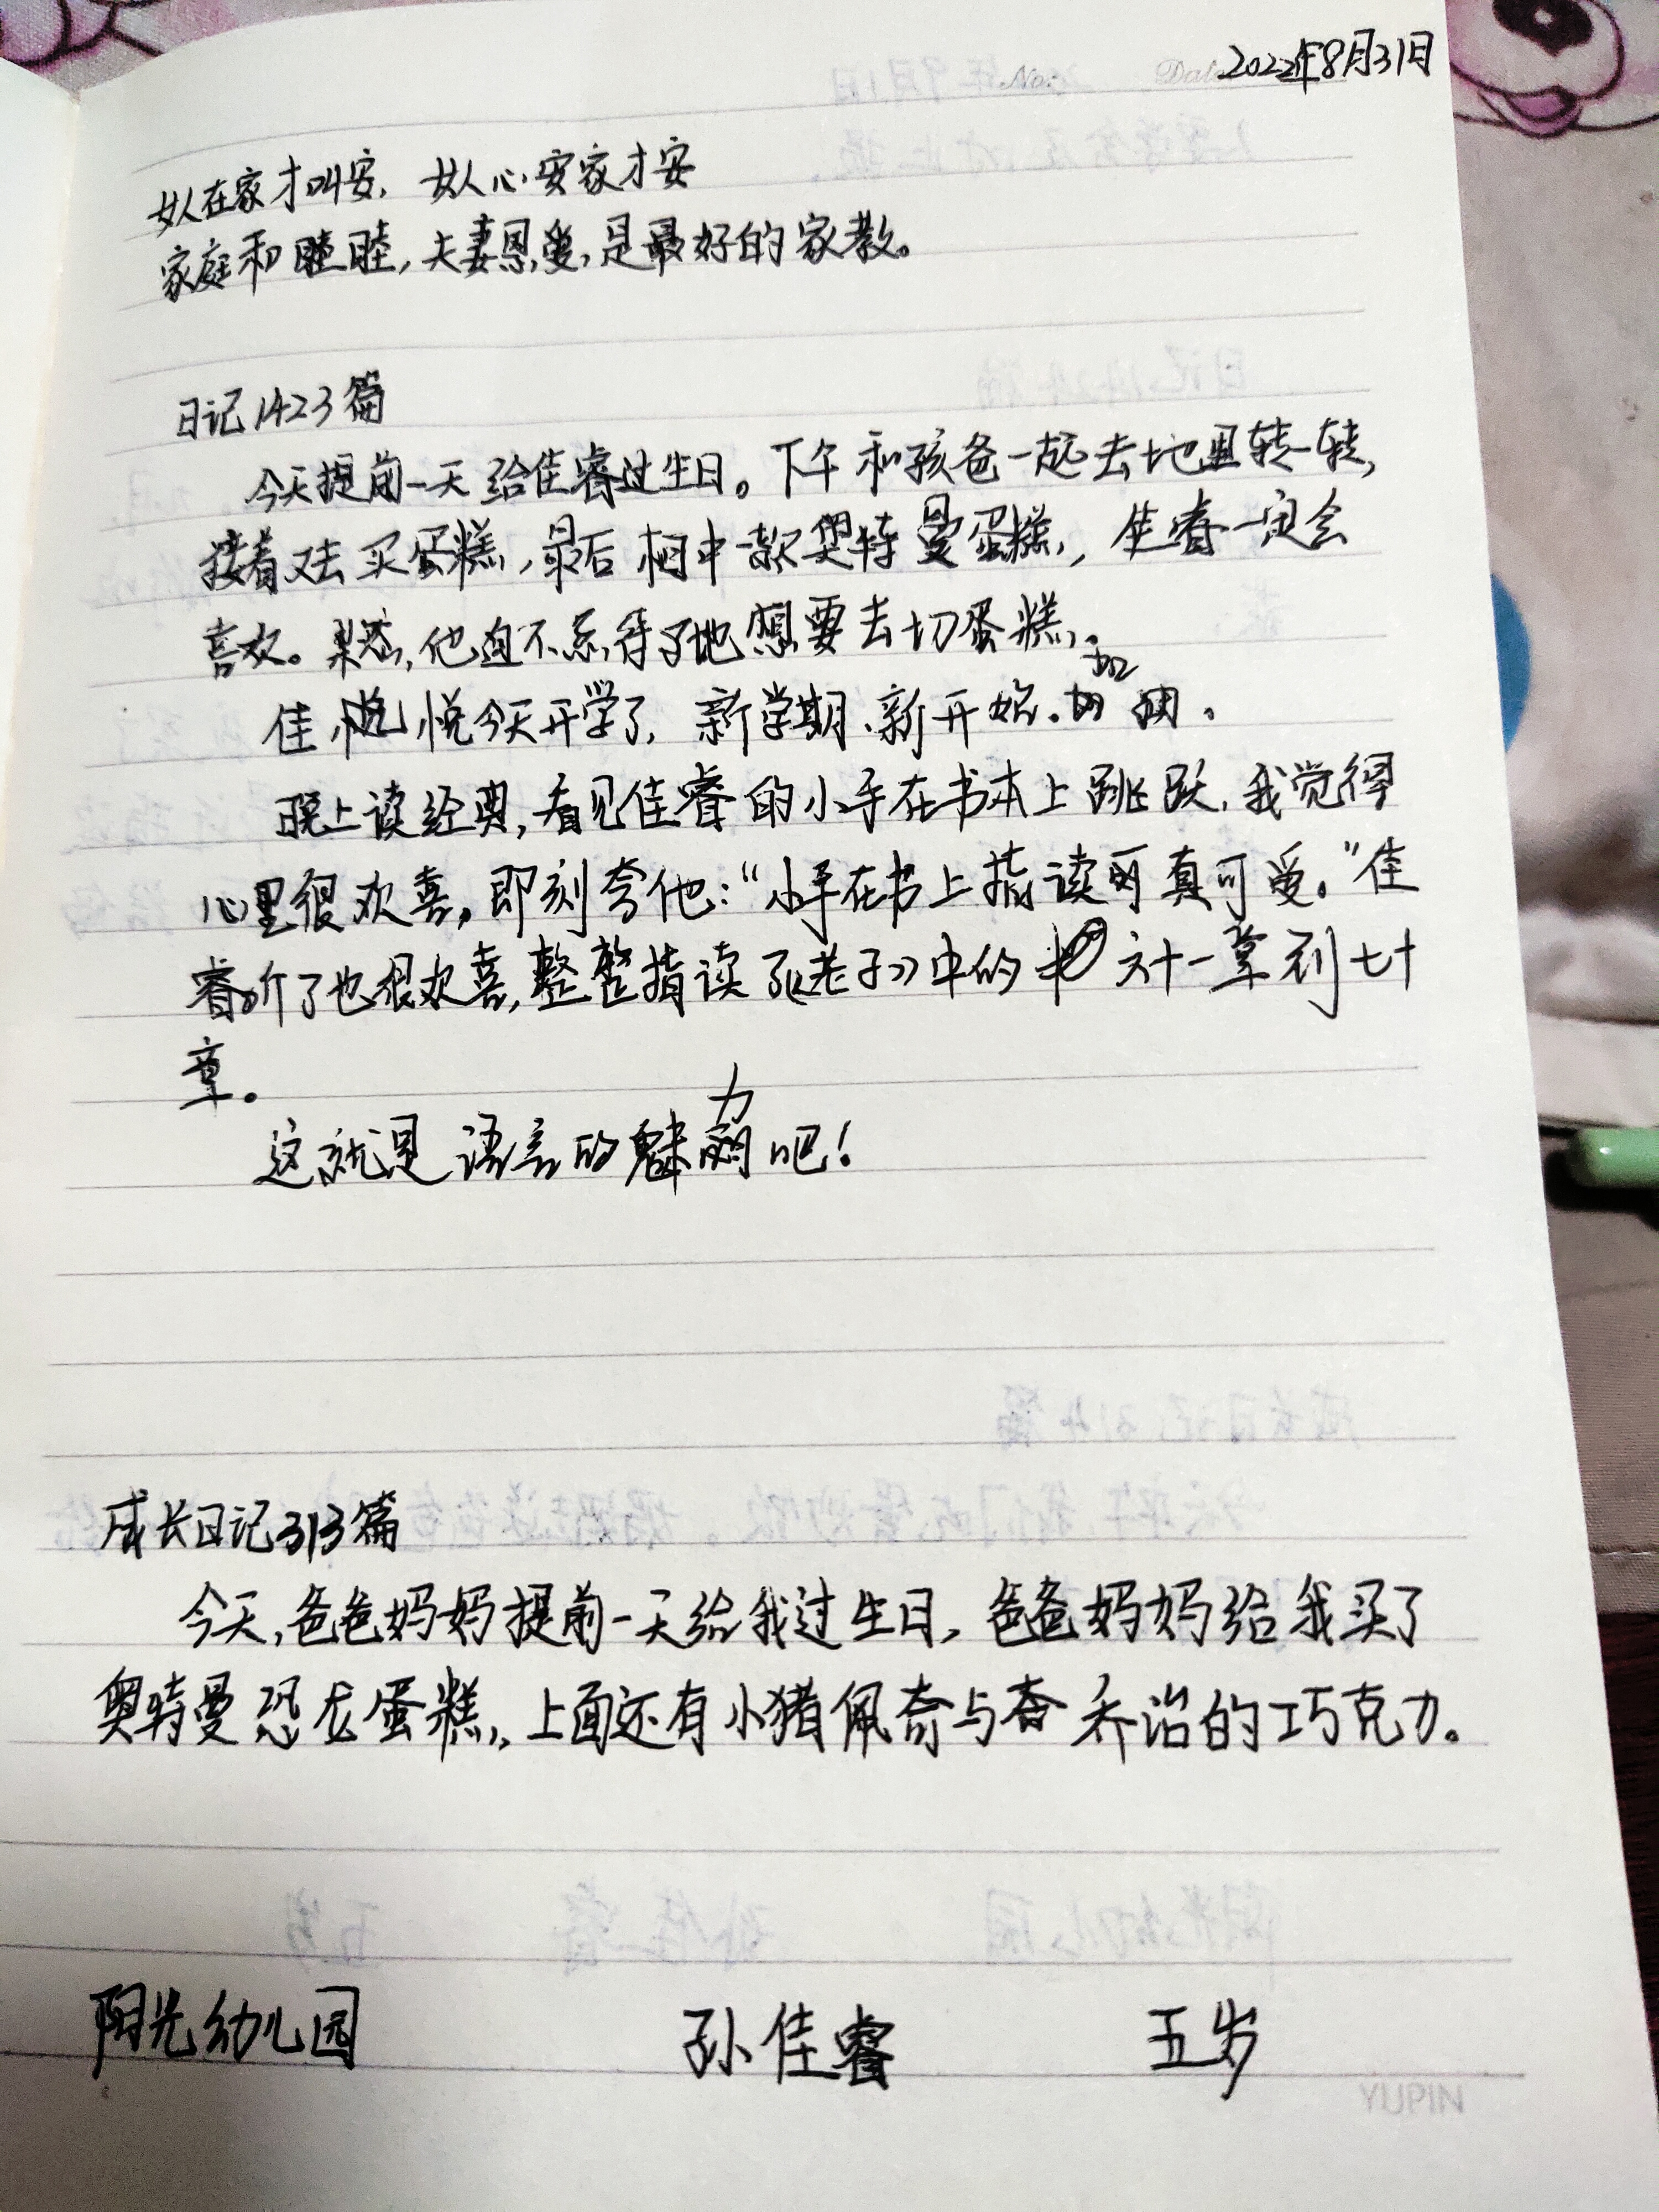 2022年8月31日
女人在家才叫安，女人心安家才安
家庭和睦，夫妻恩爱，是最好的家教。
日记1423篇
今天提前一天给佳睿过生日。下午和孩爸一起去地里转一转，
接着又去买蛋糕，最后相中一款奥特曼蛋糕，佳睿一定会
喜欢。果然，他迫不及待了地想要去切蛋糕。
佳悦今天开学了，新学期、新开始。加油。
晚上读经典，看见佳睿的小手在书本上跳跃，我觉得
心里很欢喜，即刻夸他：“小手在书上指读可真可爱。”佳
睿听了也很欢喜，整整指读了《老子》中的六十一章到七十
章。
这就是语言的魅力吧！
成长日记313篇
今天，爸爸妈妈提前一天给我过生日，爸爸妈妈给我买了
奥特曼恐龙蛋糕，上面还有小猪佩奇与乔治的巧克力。
阳光幼儿园 孙佳睿 五岁
YUPIN